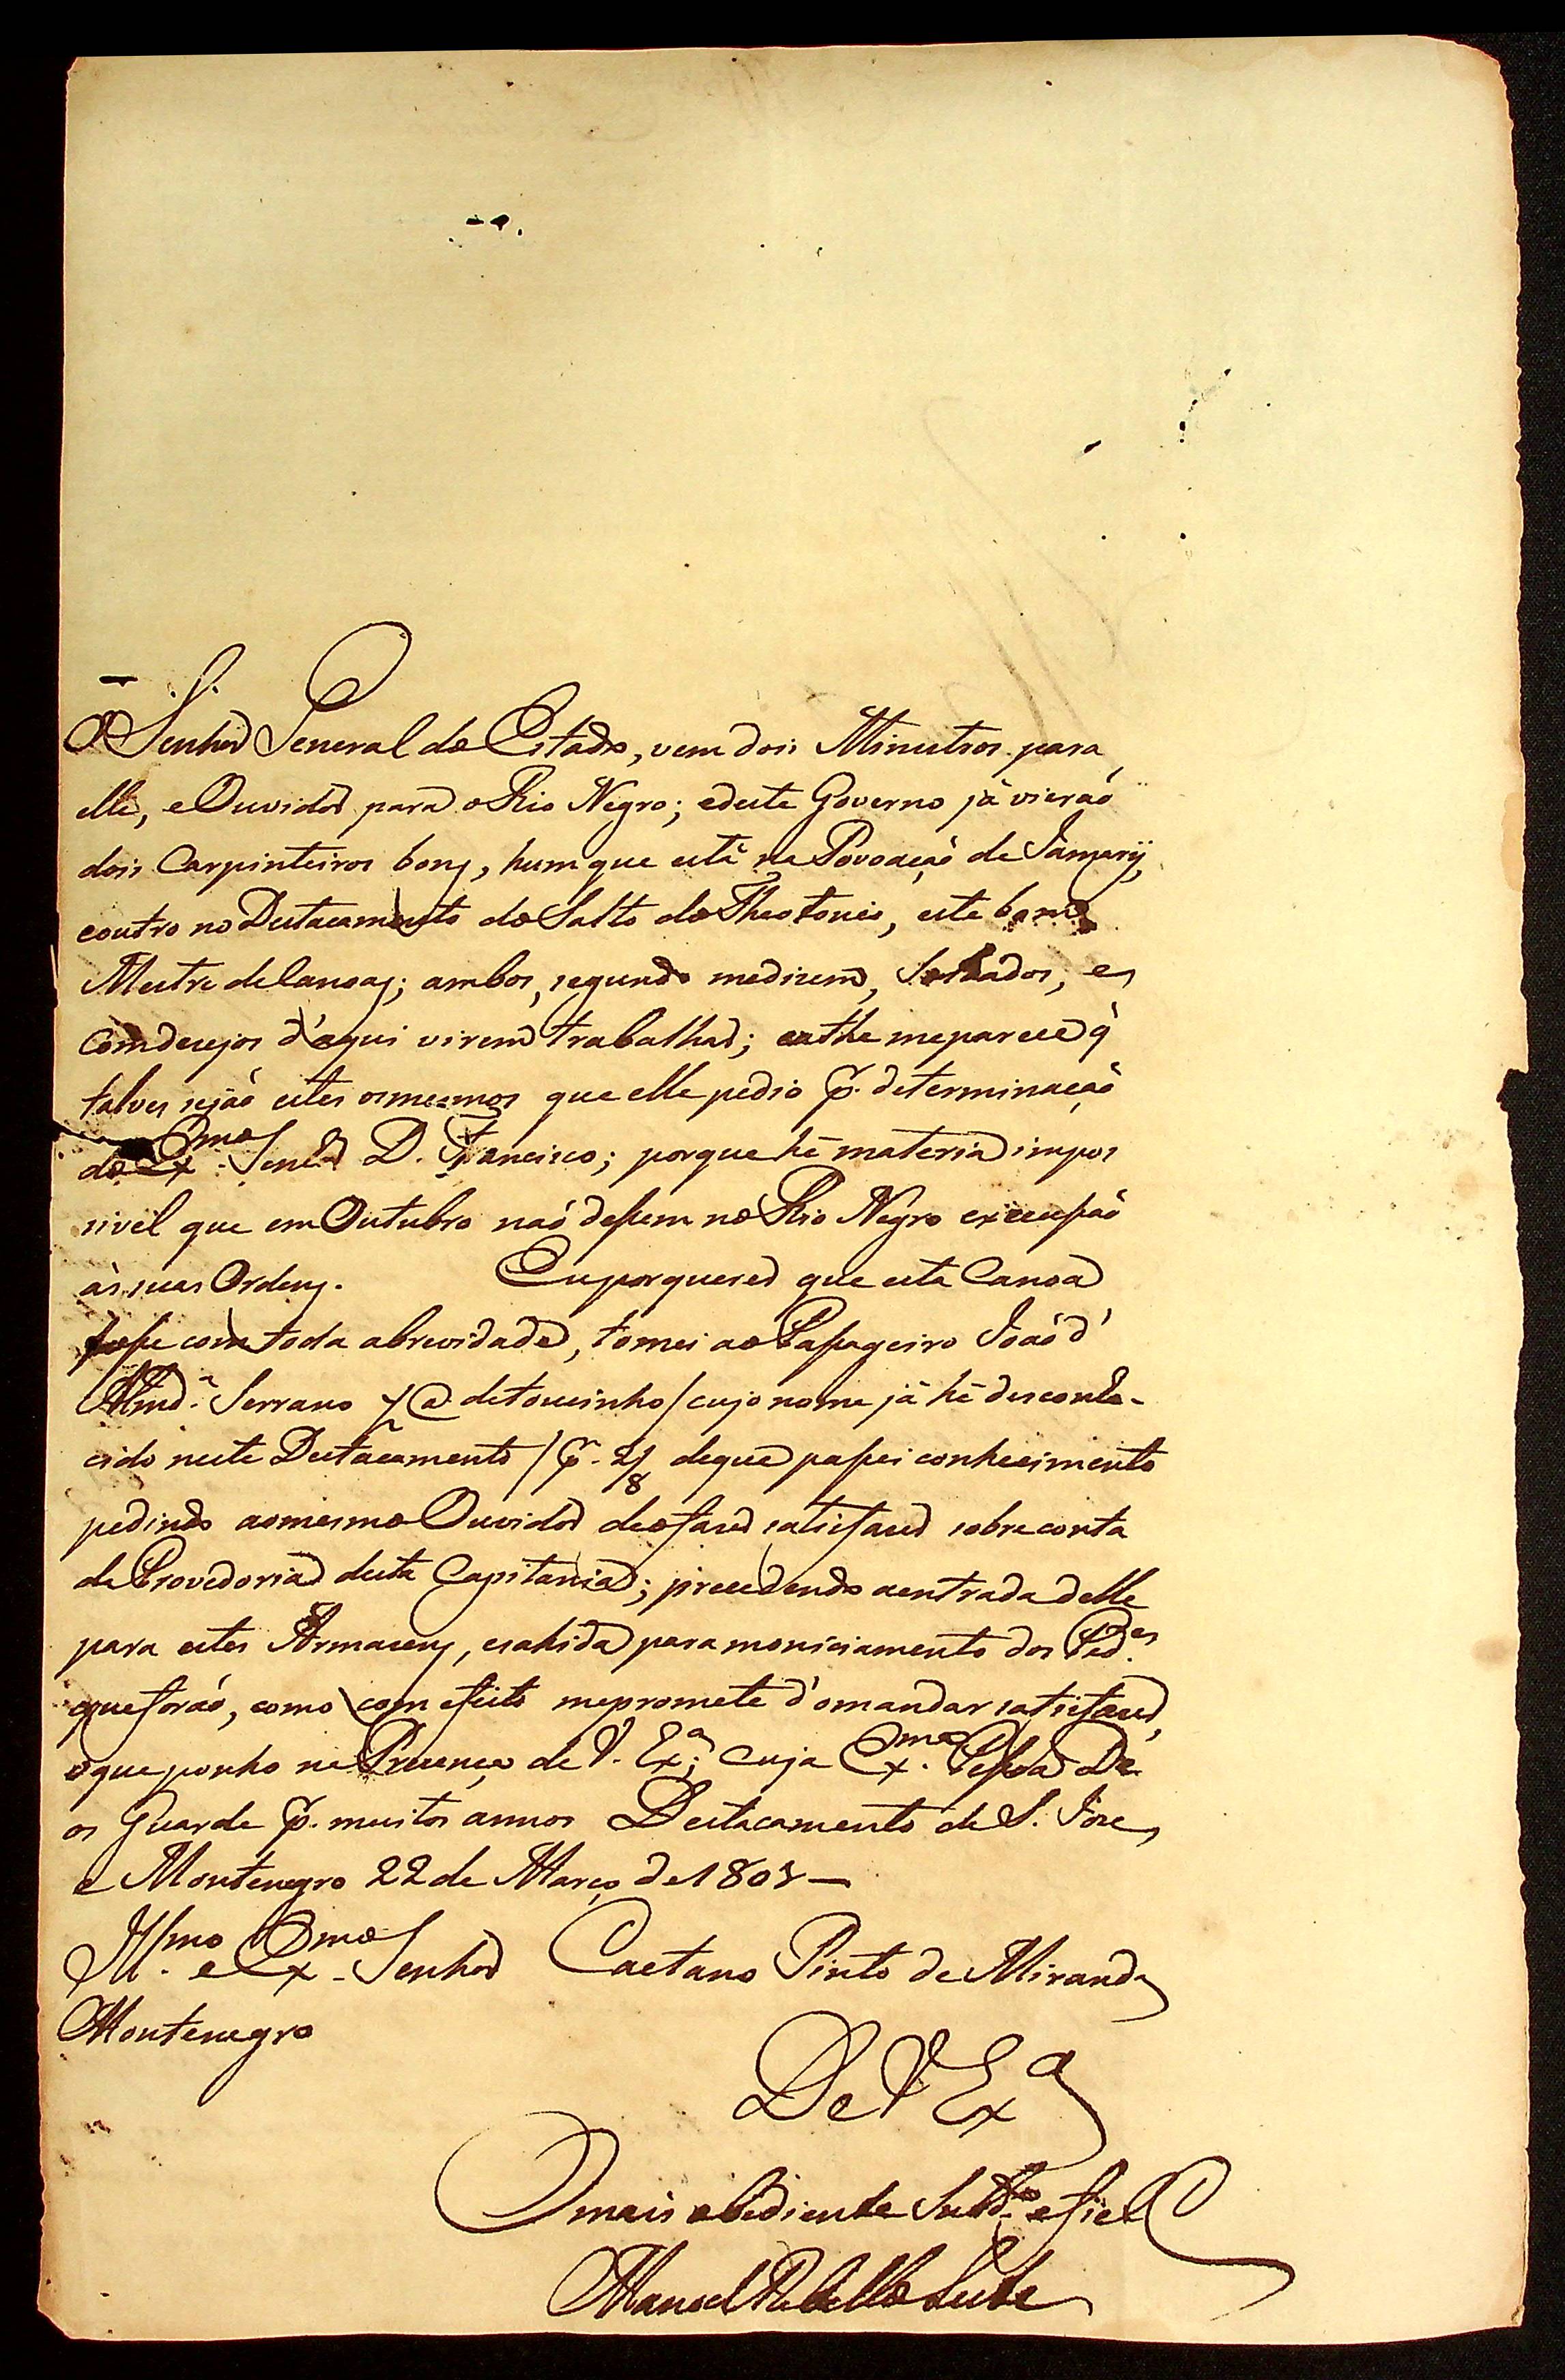 O Senhor General do Estado, vem dois Ministros para
elle, e Ouvidor para o Rio Negro; e deste Governo já vieraõ
dois Carpinteiros bons, hum que está na Povoaçaõ de Jamarÿ,
e outro no Destacamento do Salto do Theotonio, este bom
Mestre de Canoas; ambos, segundo me dizem, Soldados, e
com dezejos d'aqui virem trabalhar; e athe me parece q̃
talves sejaõ estes os mesmos que elle pedio p. determinaçaõ
do Ex.mo Senhor D. Francisco; porque hé materia impos
sivel que em Outubro naõ dessem no Rio Negro execussaõ
ás suas Ordens. Eu por querer que esta Canoa
fosse com toda a brevidade, tomei ao Passageiro Joaõ d'
Almd.a Serrano @ de toucinho / cujo nome já hé desconhe-
cido neste Destacamento / p. 2/8 de que passei conhecimento
pedindo ao mesmo Ouvidor de o fazer satisfazer sobre conta
da Provedoria desta Capitania; precedendo a entrada delle
para estes Armazens, e sahida para moniciamento dos Ped.es
que foraõ, como com efeito me promete d'o mandar satisfazer,
o que ponho na Prezença de V. Ex.a; cuja Ex.ma Pessoa De
os Guarde p. muitos annos Destacamento de S. Joze,
e Montenegro 22 de Março de 1803
Ill.mo e Ex.mo Senhor Caetano Pinto de Miranda
Montenegro
De V Ex.a
O mais obediente Subd.to e fiel C
Manoel Rebello Leite